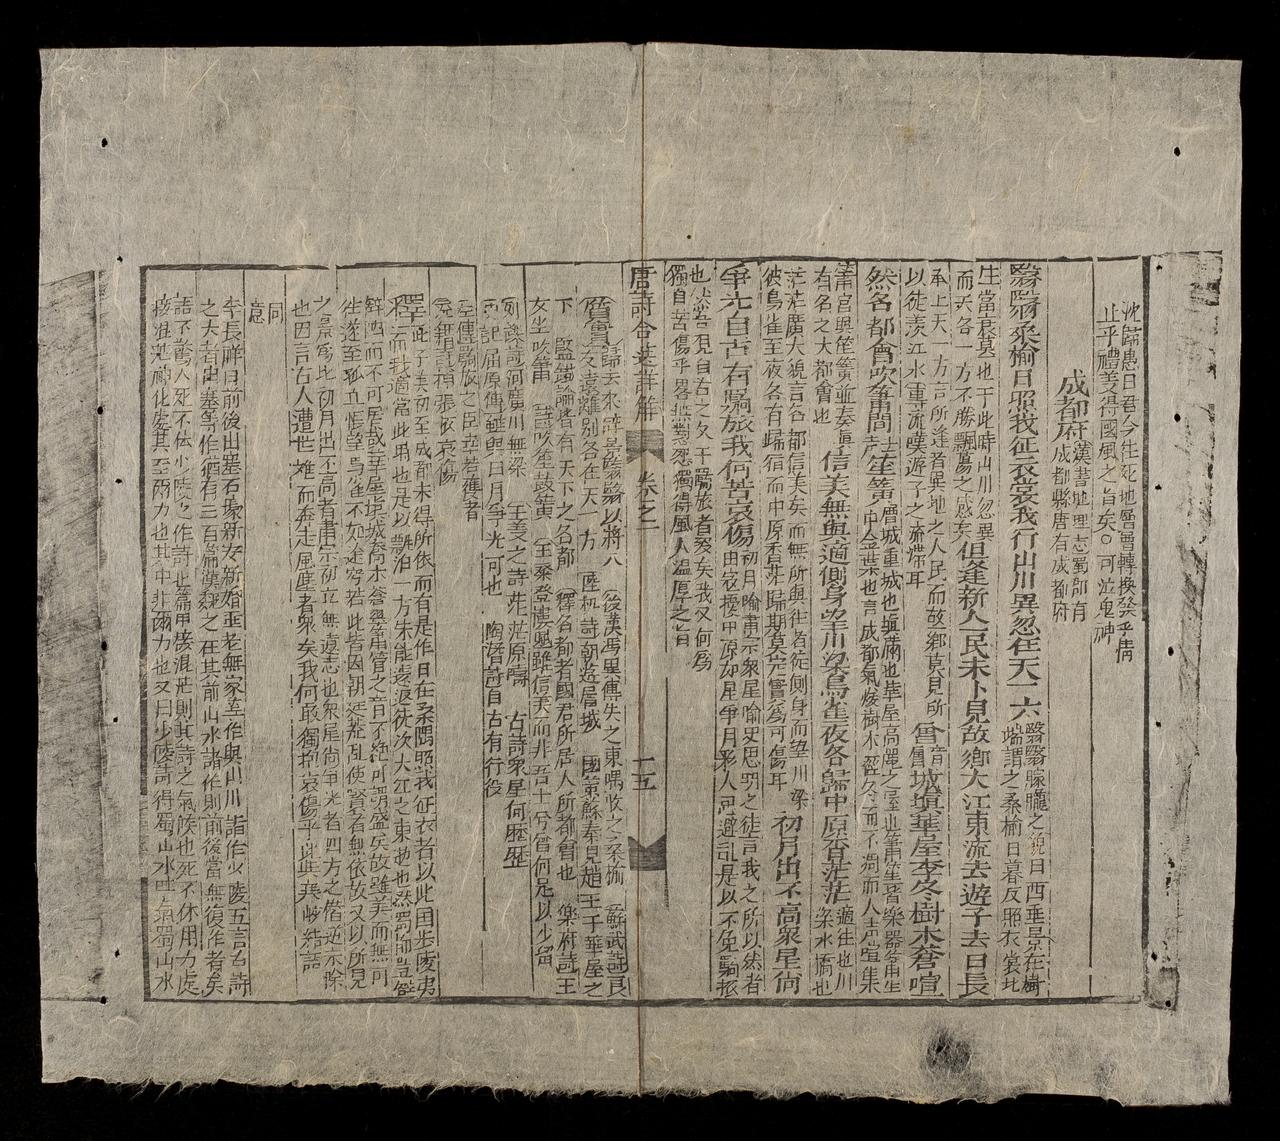 沈歸愚曰君今往死地層層轉換發乎情
止乎禮義得國風之旨矣○可泣鬼神
成都府漢書地理志蜀郡有成都縣唐有成都府
翳翳桑榆日照我征衣裳我行山川異忽在天一方翳翳朦朧之貌日西垂景在樹端謂之桑榆日暮反照衣裳此
生當哀暮也于此時山川忽異而天各一方不勝飄蕩之感矣但逢新人民未卜見故鄉大江東流去遊子去日長
承上天一方言所逢者異地之人民而故鄉莫見所以徒羨江水東流嘆遊子之流滯耳曾音層城塡華屋季冬樹木蒼喧
然名都會吹簫間去聲笙簧層城重城也塡滿也華屋高麗之屋也簫笙皆樂器簧笙中金葉也言成都氣煖樹木蒼久而不凋而人烟喧集
簫管與笙簧並奏眞有名之大都會也信美無與適側身望川梁鳥雀夜各歸中原杳茫茫適往也川梁水橋也
茫茫廣大貌言名都信美矣而無所與往者祗側身而望川梁彼鳥雀至夜各有歸宿而中原杳茫歸期莫定實爲可傷耳初月出不高衆星尚
爭光自古有羈旅我何苦哀傷初月喻肅宗衆星喻史思明之徒言我之所以然者由寇擾中原如星爭月彩人思避亂是以不免羈旅
也然吾視自古之久于羈旅者多矣我又何爲
獨自苦傷乎畧無懟怨獨得風人温厚之旨
唐詩合選詳解　卷之二　十五
質實歸去來辭景翳翳以將入　後漢馮異傳失之東隅收之桑榆　蘇武詩良
友遠離別各在天一方　陸机詩朝遊層城　國策蘇秦見趙王于華屋之
下　鹽鐵論皆有天下之名都　釋名都者國君所居人所都會也　樂府詩王
女坐吹簫　詩吹笙鼓簧　王粲登樓賦雖信美而非吾土兮曾何足以少留
江淹詩河廣川無梁　王姜之詩茫茫原疇　古詩衆星何歷歷
史記屈原傳雖與日月爭光可也　陶潛詩自古有行役
左傳羈旅之臣幸若獲宥
楚辭詩增張夜哀傷
釋此子美初至成都未得所依而有是作日在桑隅照我征衣者以此因步陵夷
而我適當此時也是以飄泊一方未能遠返徒次大江之東逝也然蜀都豈僻
陋而不可居哉華屋塡城喬木蒼鬱簫管之音不絕可謂盛矣故雖美而無可
往遂至孤立悵望鳥雀不如途窮若此皆因朝廷荒亂使賢者無依故又以所見
之景爲比初月出不高者肅宗初立無遠志也衆星尚爭光者四方之僭逆未除
也因言古人遭世難而奔走風塵者衆矣我何敢獨抱哀傷乎此與莫妙結語
同意
李長祥曰前後出塞石壕新安新婚垂老無家等作與山川諸作少陵五言古詩
之大者出塞等作猶有三百篇漢魏之在其前山水諸作則前後當無復作者矣
語不驚人死不休少陵之作詩此篇甲接混茫則其詩之氣候也死不休用力處
接混茫神化處其至爾力也其中非爾力也又曰少陵詩得蜀山水吐氣蜀山水